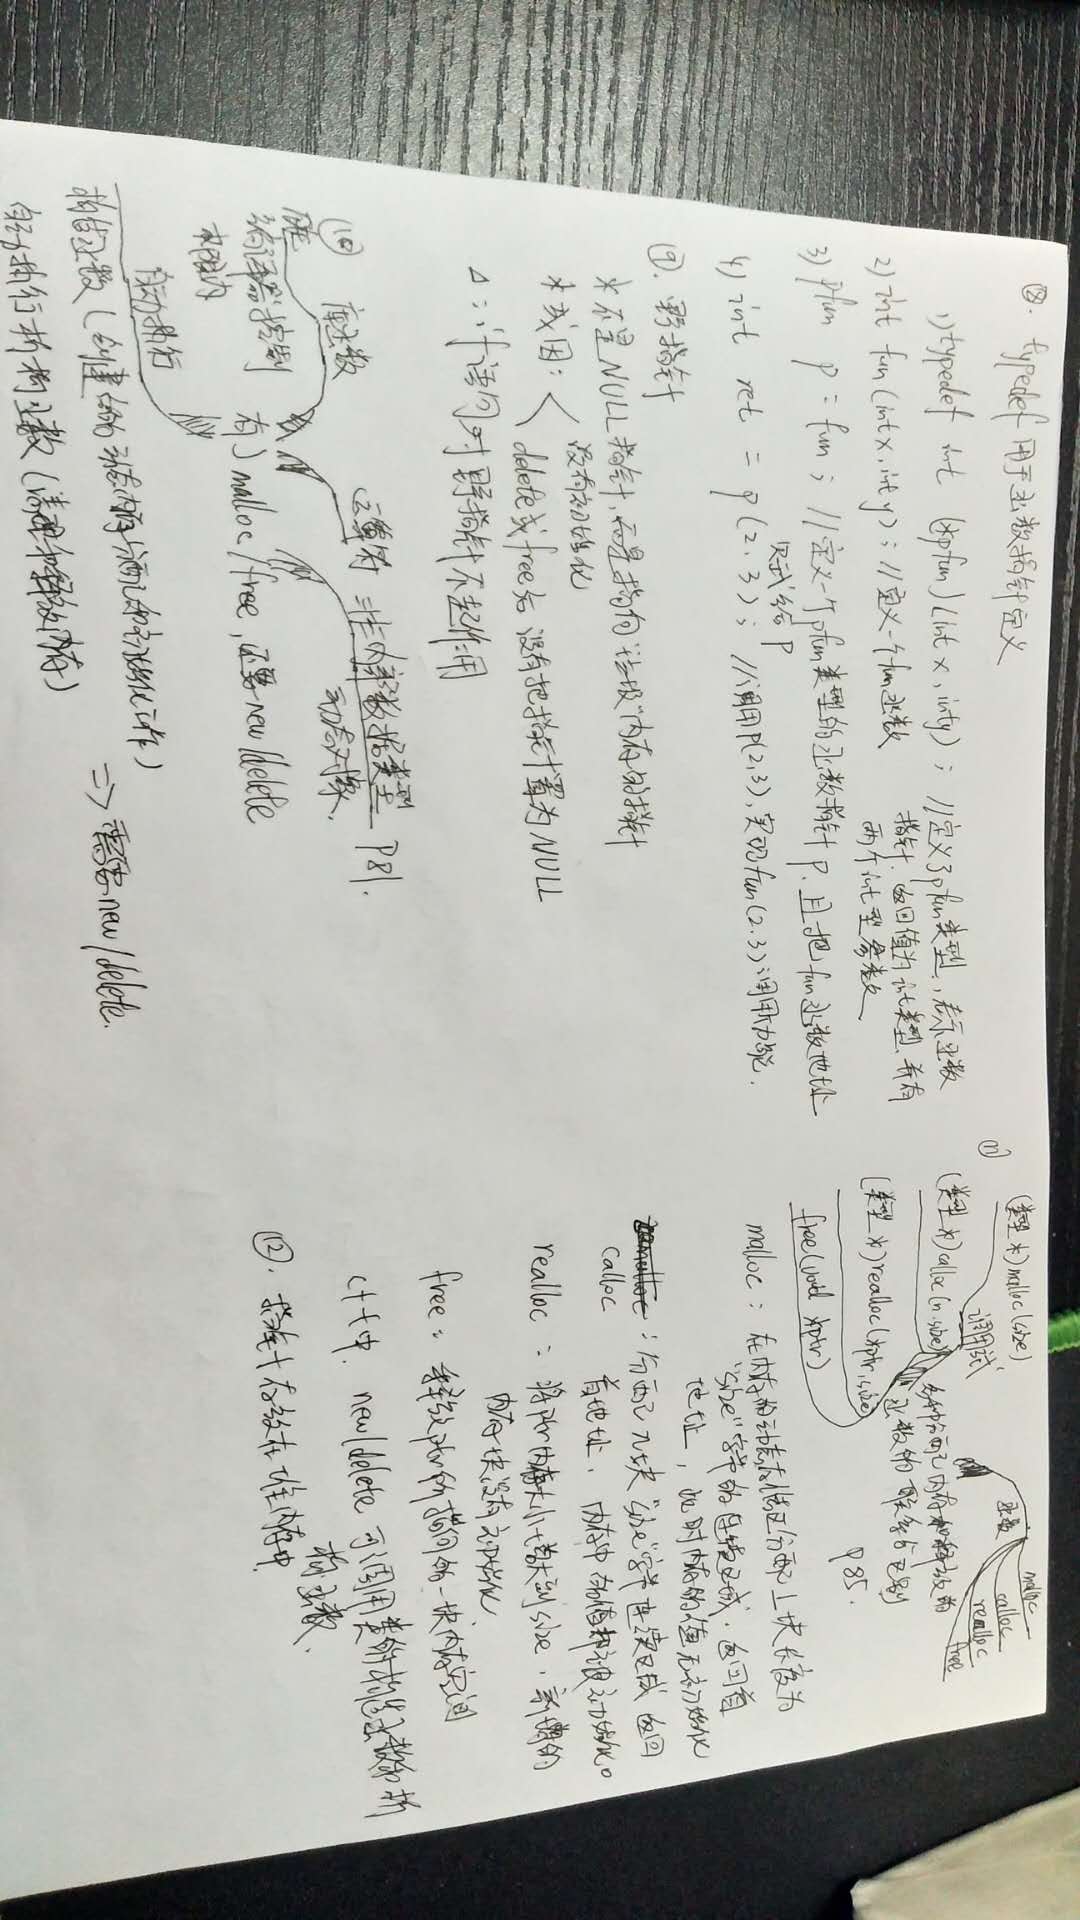 ⑧. typedef 用于函数指针定义
1) typedef int (*pfun)(int x, int y) ; //定义了pfun类型,表示函数
指针.返回值为int类型.并有
两个int型参数
2) int fun(int x, int y) ; //定义一个fun函数
3) pfun p = fun ; //定义一个pfun类型的函数指针p.且把fun函数地址
赋给p
4) int ret = p(2, 3) ; //调用p(2,3),实现fun(2.3)调用功能.
⑨. 野指针
* 不是NULL指针,而是指向"垃圾"内存的指针
* 成因: 没有初始化
delete或free后没有把指针置为NULL
△: if语句对野指针不起作用
⑩ 库函数 运算符 非内部数据类型 P81.
动态对象.
编译器控制
权限内
有了malloc/free,还要new/delete
自动执行
构造函数(创建的动态内存分配和初始化工作)
=> 需要new/delete.
自动执行析构函数(清理和释放内存)
⑪ (类型*)malloc(size)
调用形式
(类型*)calloc(n.size)
(类型*)realloc(*ptr,size)
free(void *ptr)
函数
malloc
calloc
realloc
free
多种分配内存和释放的
函数的联系与区别
P85.
malloc: 在内存的动态存储区分配1块长度为
"size"字节的连续区域.返回首
地址,此时内存的值无初始化
calloc : 分配n块"size"字节连续区域 返回
首地址. 内存中的值都被初始化。
realloc : 将ptr内存大小增大到size.新增的
内存块没有初始化
free: 释放ptr所指向的一块内存空间
c++中. new/delete可调用类的构造函数和析
构函数.
⑫. 指针存放在堆内存中.